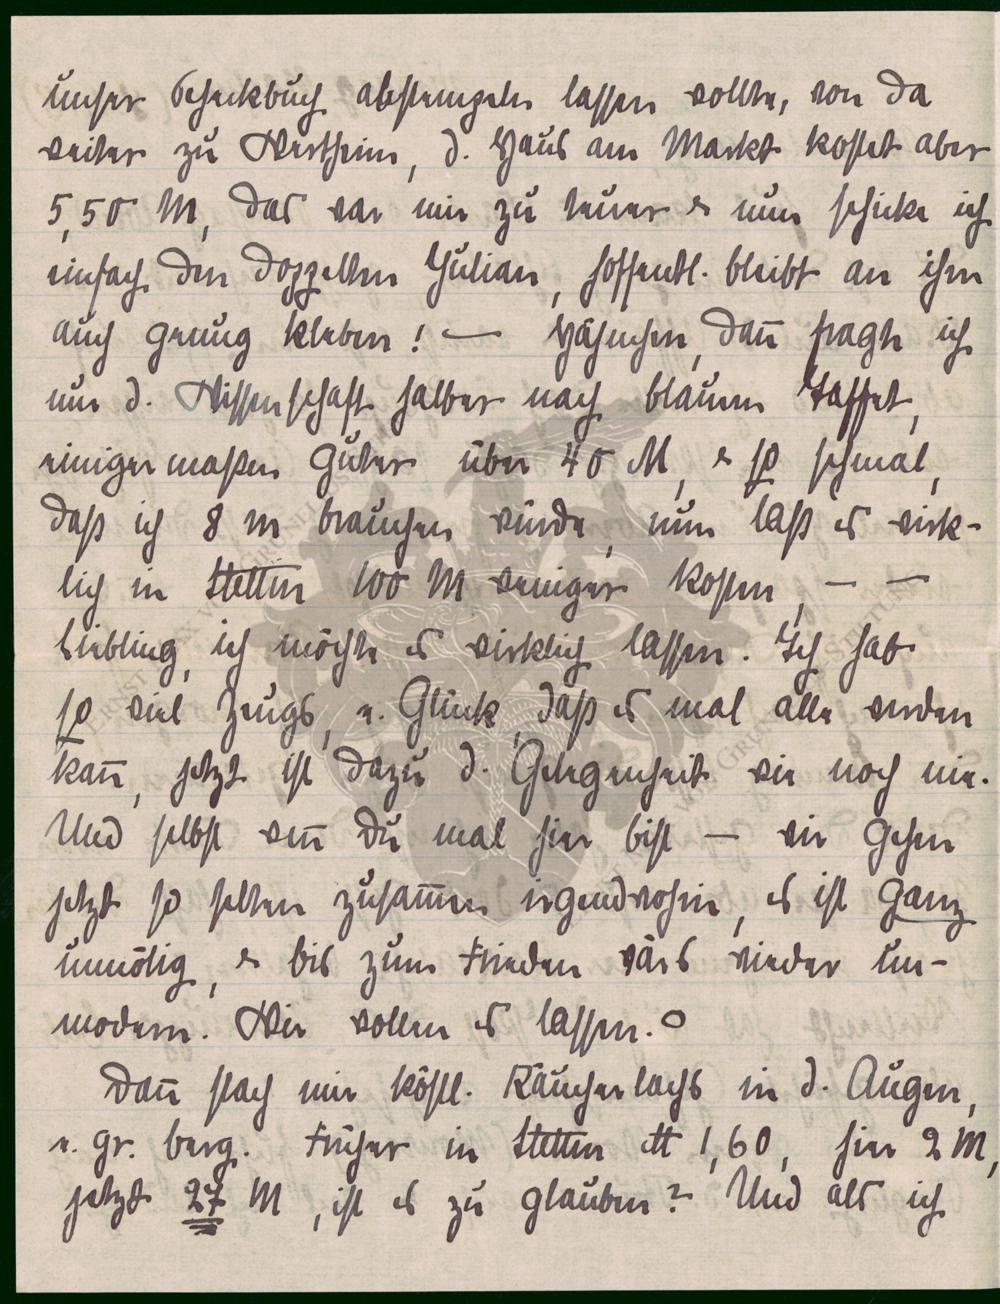 unser Scheckbuch abstempeln lassen wollte, von da
weiter zu Wertheim, d. Haus am Markt kostet aber
5,50 M, das war mir zu teuer & nun schicke ich
einfach den doppelten Julian, hoffentl. bleibt an ihm
auch genug kleben! — Hähnchen, dañ fragte ich
nur d. Wissenschaft halber nach blauem Taffet,
einigermaßen guter über 40 M, & so schmal,
daß ich 8 m brauchen würde, nun laß es wirk-
lich in Stettin 100 M weniger kosten, — —
Liebling, ich möchte es wirklich lassen. Ich hab
so viel Zeugs, e. Glück, daß es mal alle werden
kañ, jetzt ist dazu d. Gelegenheit wie noch nie.
Und selbst weñ Du mal hier bist — wir gehen
jetzt so selten zusam̄en irgendwohin, es ist ganz
unnötig, & bis zum Frieden wärs wieder un-
modern. Wir wollen es lassen.
Dañ stach mir köstl. Räucherlachs in d. Augen,
e. gr. Berg. Früher in Stettin 1,60, hier 2 M,
jetzt 27 M, ist es zu glauben? Und als ich
ERNST MAX VON GRUNELIUS-STIFTUNG
ERNST MAX VON GRUNELIUS-STIFTUNG